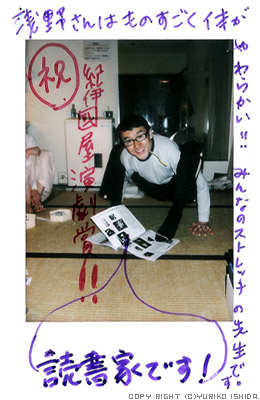 浅野さんはものすごく体が
やわらかい!!! みんなのストレッチの先生です。
祝
紀伊國屋演劇賞!!
読書家です!
COPY RIGHT (C)YURIKO ISHIDA.